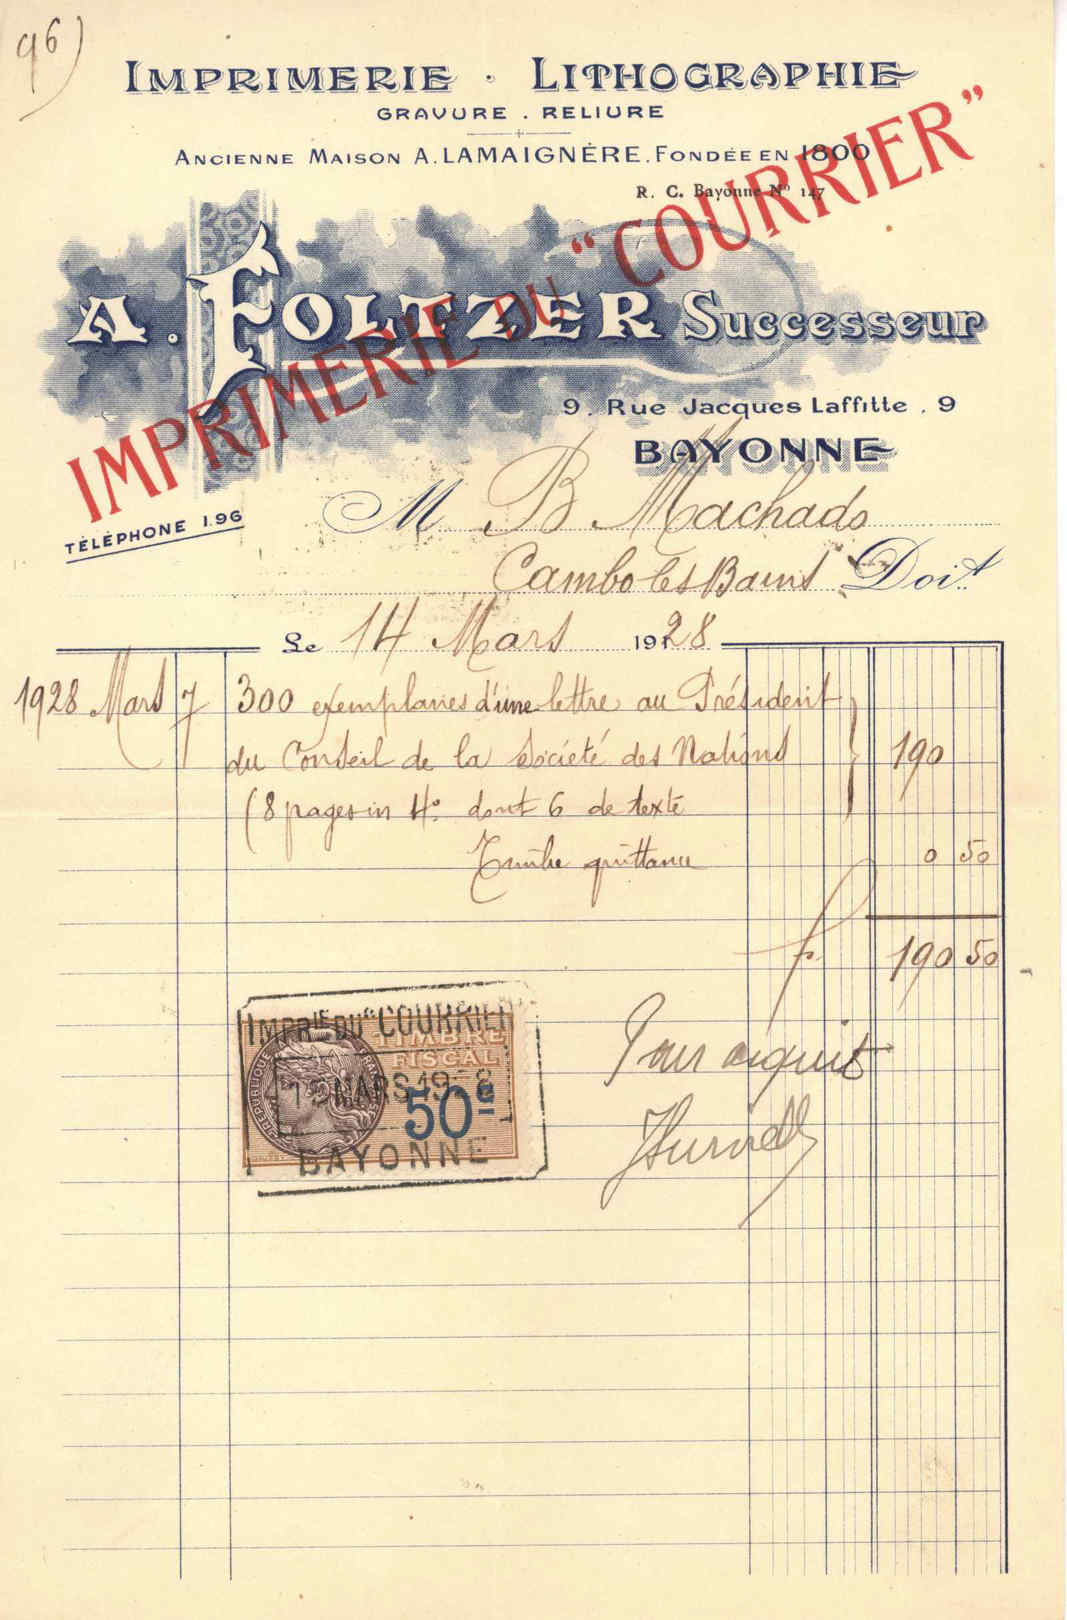 96)
IMPRIMERIE · LITHOGRAPHIE
GRAVURE . RELIURE
ANCIENNE MAISON A. LAMAIGNÈRE. FONDÉE EN 1800
R. C. Bayonne Nº 147
IMPRIMERIE DU "COURRIER"
A. FOLTZER Successeur
9. Rue Jacques Laffitte . 9
BAYONNE
TÉLÉPHONE 1.96
M B Machado
Cambo les Bains Doit
Le 14 Mars 19128
1928 Mars 7 300 exemplaires d'une lettre au Président
du Conseil de la Société des Nations 190
(8 pages in 4º dont 6 de texte
Timbre quittance 0 50
f. 190 50
IMPRIE DU "COURRIER
TIMBRE
FISCAL
RÉPUBLIQUE FRANÇAISE
MARS 19 8
50c
BAYONNE
Pour acquit